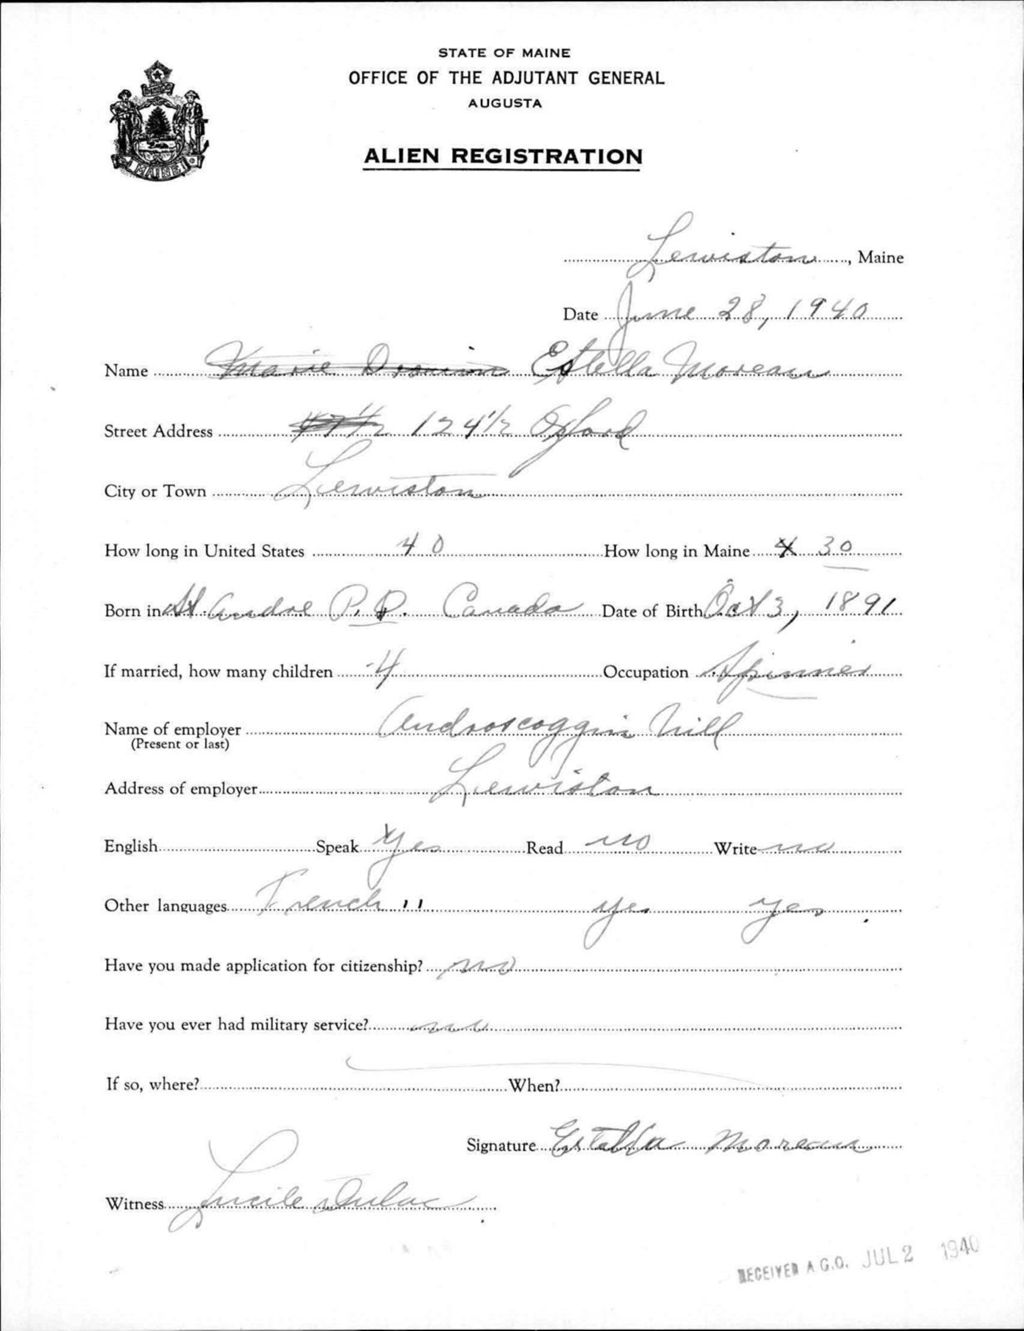 STATE OF MAINE
OFFICE OF THE ADJUTANT GENERAL
AUGUSTA
ALIEN REGISTRATION
MAINE
Lewiston, Maine
Date June 28, 1940
Name Marie Estella Moreau
Street Address 47 1/2 124 1/2 Oxford
City or Town Lewiston
How long in United States 40 How long in Maine 4 30
Born in St. Andre P.Q. Canada Date of Birth Oct 3, 1891
If married, how many children 4 Occupation Spinner
Name of employer Androscoggin Mill
(Present or last)
Address of employer Lewiston
English Speak Yes Read no Write no
Other languages French " yes yes
Have you made application for citizenship? no
Have you ever had military service? no
If so, where? When?
Signature Estella Moreau
Witness Lucile Dulac
RECEIVED A.G.O. JUL 2 1940